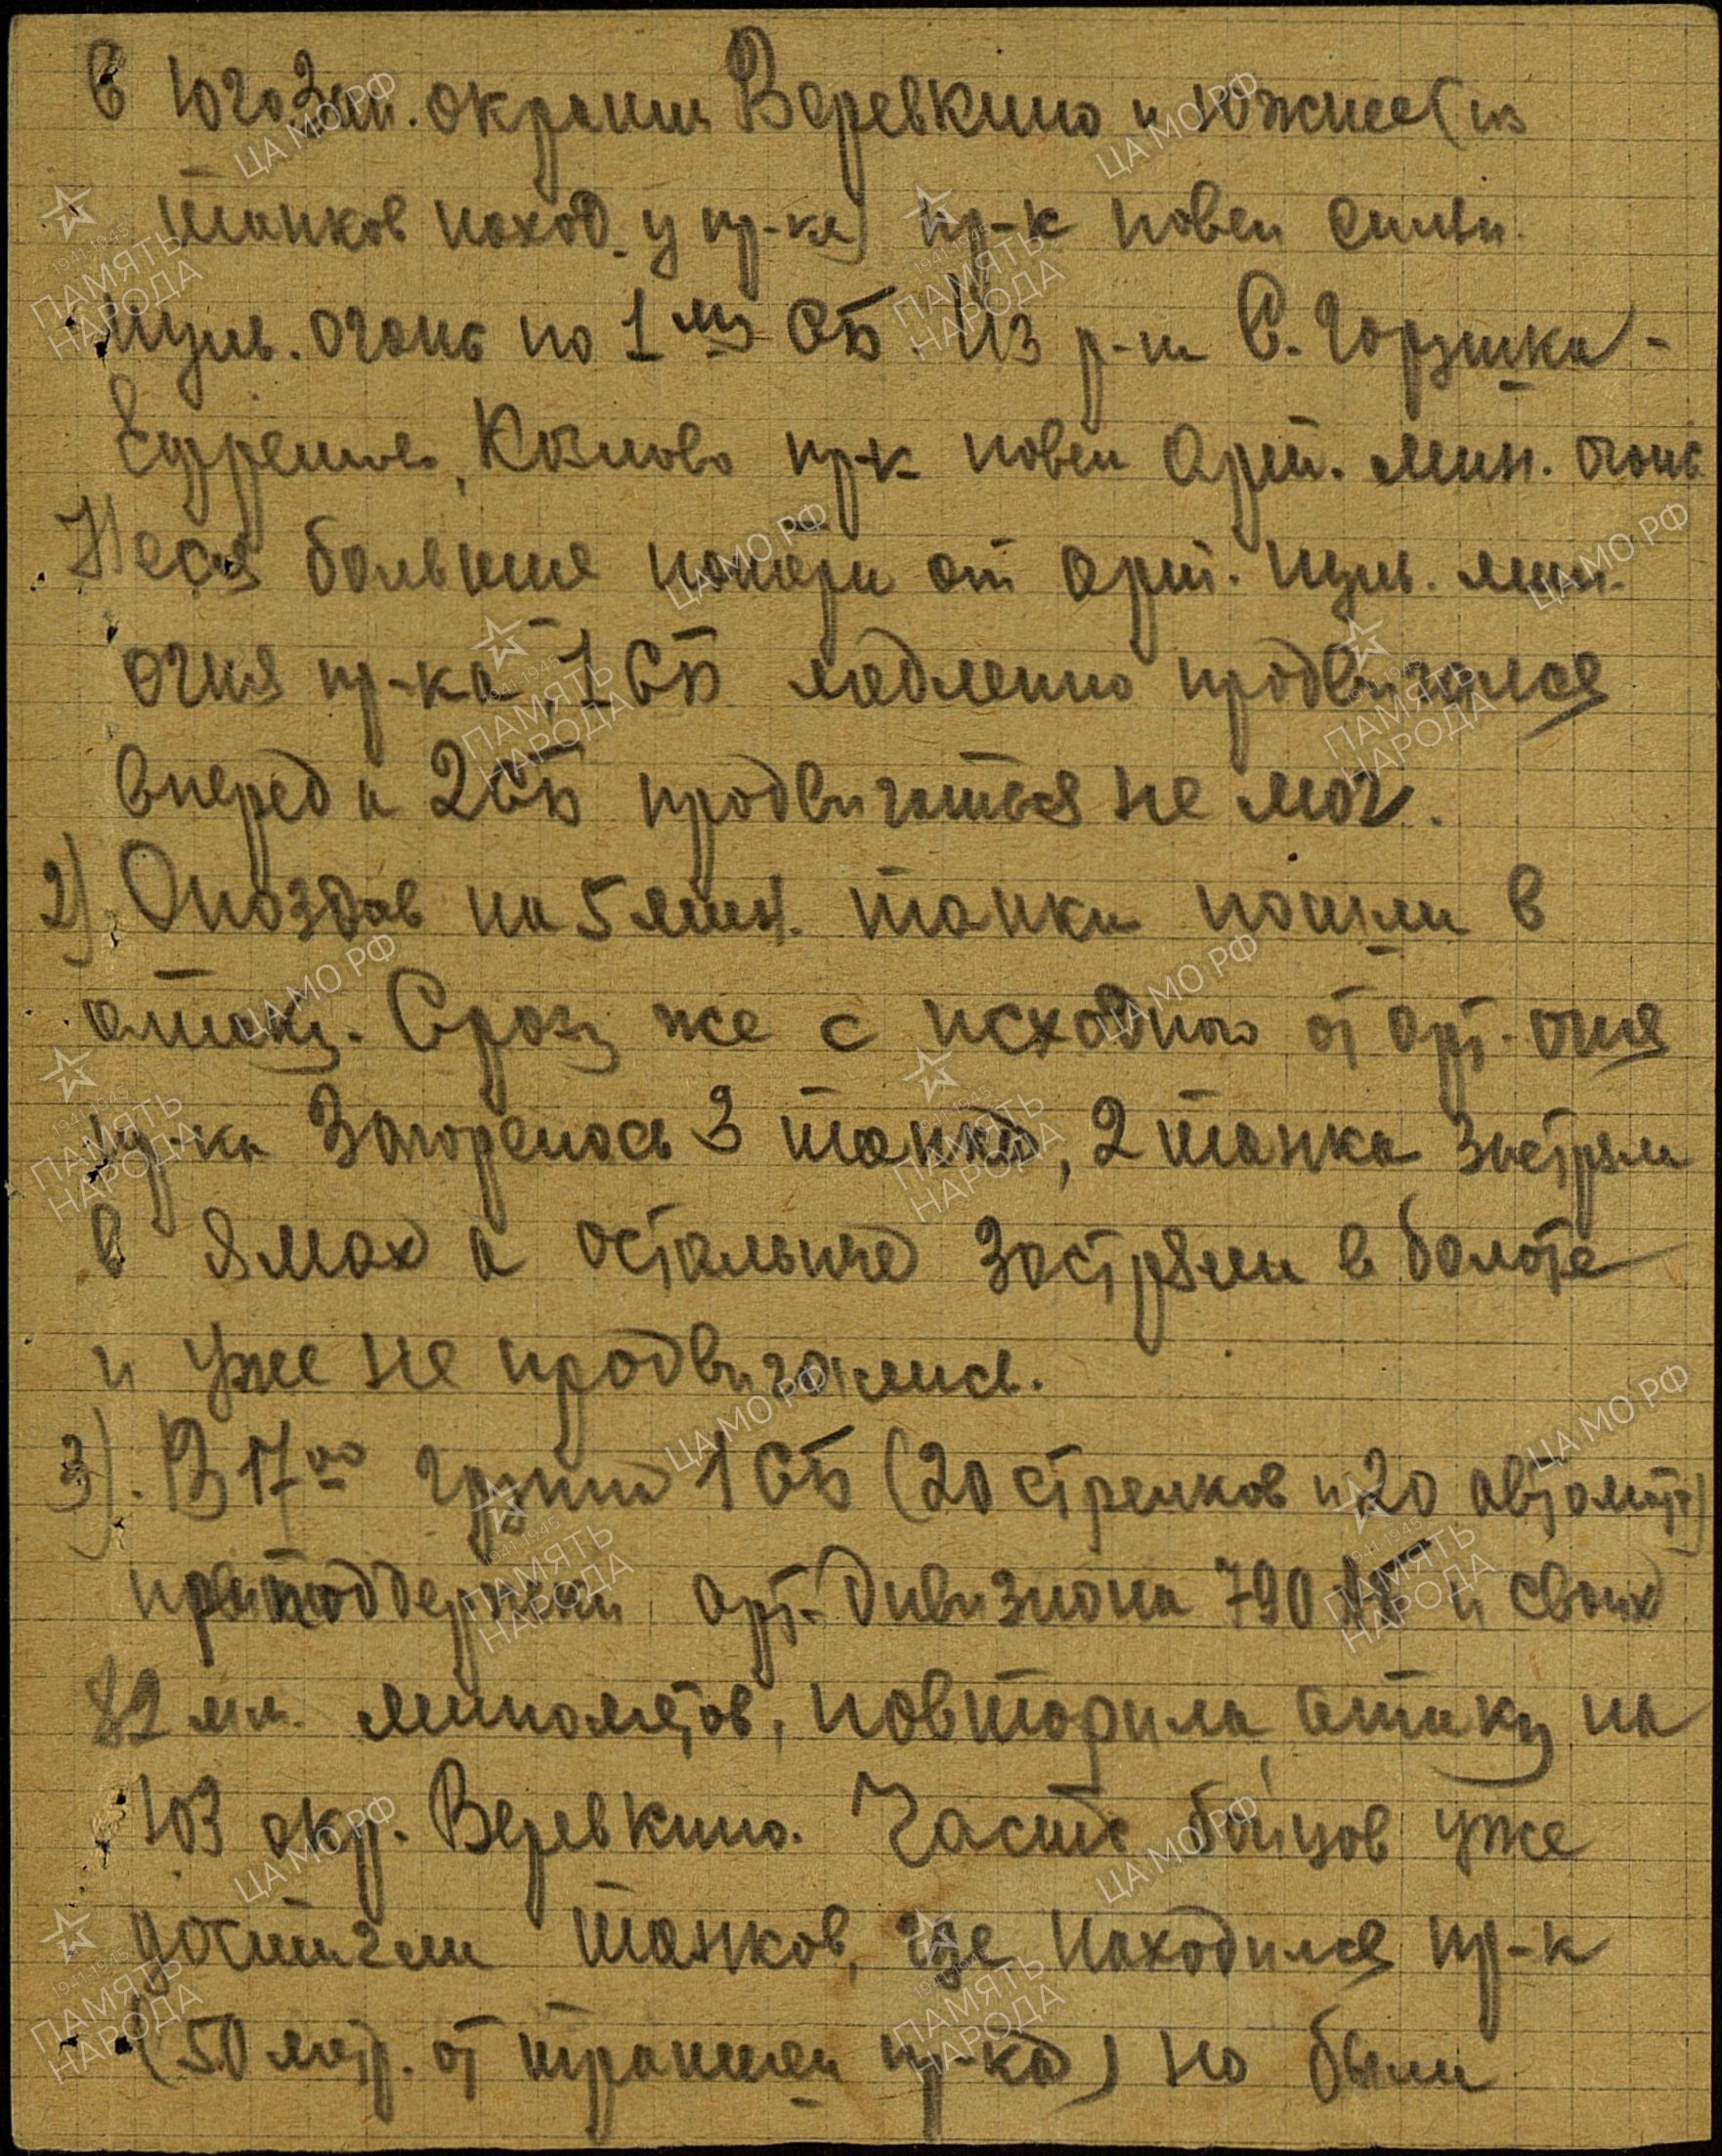 С Югозап. окраины Веревкино и Южнее (из
танков наход. у пр-ка) пр-к повел сильн.
пулем. огонь по 1му СБ. Из р-на С. Горушка -
Ефремово, Козлово пр-к повел Арт. мин. огонь
Неся большие потери от арт. пул. мин.
огня пр-ка, 1 СБ медленно продвигался
вперед а 2СБ продвигаться не мог.
2) Опоздав на 5 мин. танки пошли в
атаку. Сразу же с исходного от арт. огня
пр-ка Загорелось 3 танка, 2 танка застряли
в ямах а остальные застряли в болоте
и уже не продвигались.
3). В 17 00 группа 1 СБ (20 стрелков и 20 автомат)
при поддержки арт. дивизиона 790 АП и своих
82 мм. минометов, повторила атаку на
ЮЗ окр. Веревкино. Часть бойцов уже
достигли танков, где находился пр-к
(50 метр. от траншеи пр-ка) но были
ЦА МО РФ
ПАМЯТЬ НАРОДА
1941-1945